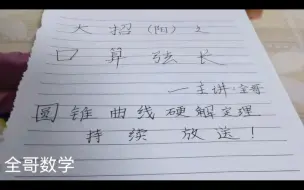 大招（阳）之
口算弦长
—主讲:全哥
圆锥曲线硬解定理
持续放送！
全哥数学